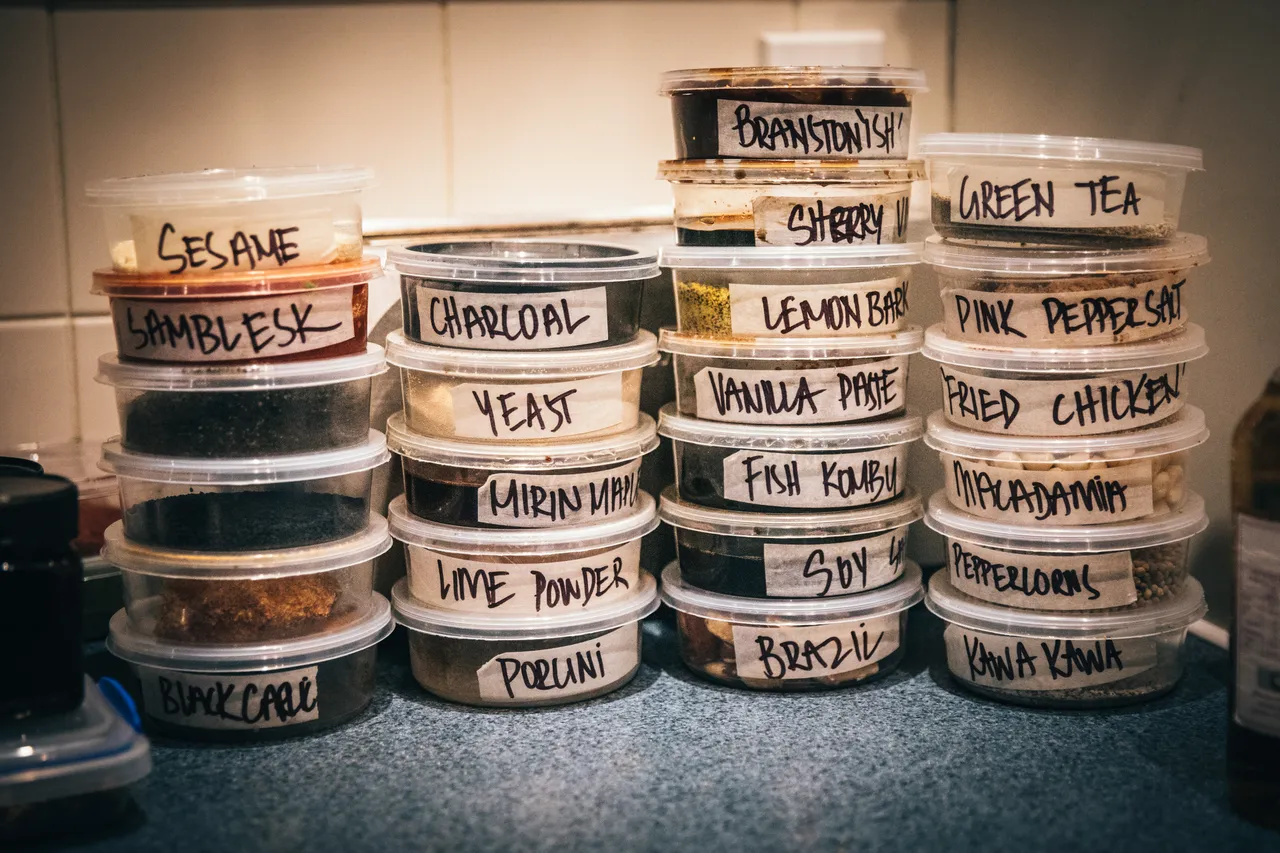 SESAME
SAMBLESK
BLACK GARLIC
CHARCOAL
YEAST
MIRIN MAPL
LIME POWDER
PORCINI
BRANSTON'ISH'
SHERRY VI
LEMON BARK
VANILLA PASTE
FISH KOMBU
SOY
BRAZIL
GREEN TEA
PINK PEPPER SALT
'FRIED CHICKEN'
MACADAMIA
PEPPERCORNS
KAWA KAWA